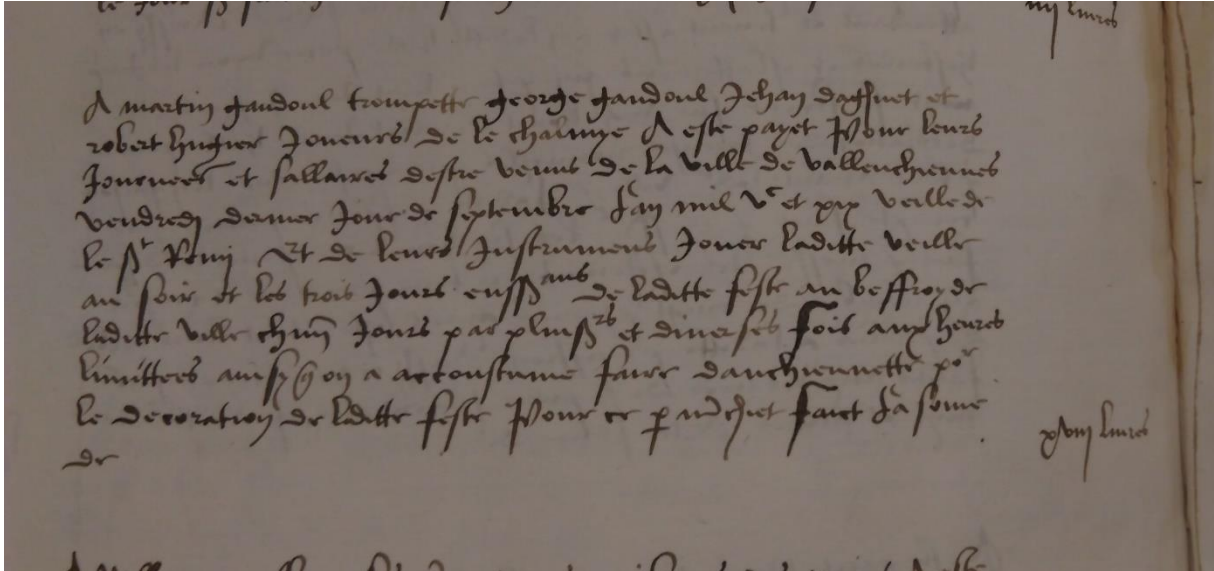 iiii livres
A martin gandoul trompette george gandoul Jehan dagnet et
robert hugier Joueurs de le chalmye A este payet Pour leurs
Journees et sallaires destre venus de la ville de vallenchiennes
vendredj dernier Jour de septembre l'an mil Vc et xix veille de
le St Remj Et de leurs Instrumens Jouer laditte veille
au soir et les trois Jours enss ans de laditte feste au beffroy de
laditte ville Jours par pluissrs et diverses fois aux heures
limittees ainsy qon a accoustume faire danchiennette por
le decoration de laditte feste Pour ce p marchiet faict La some
de
xviij livres